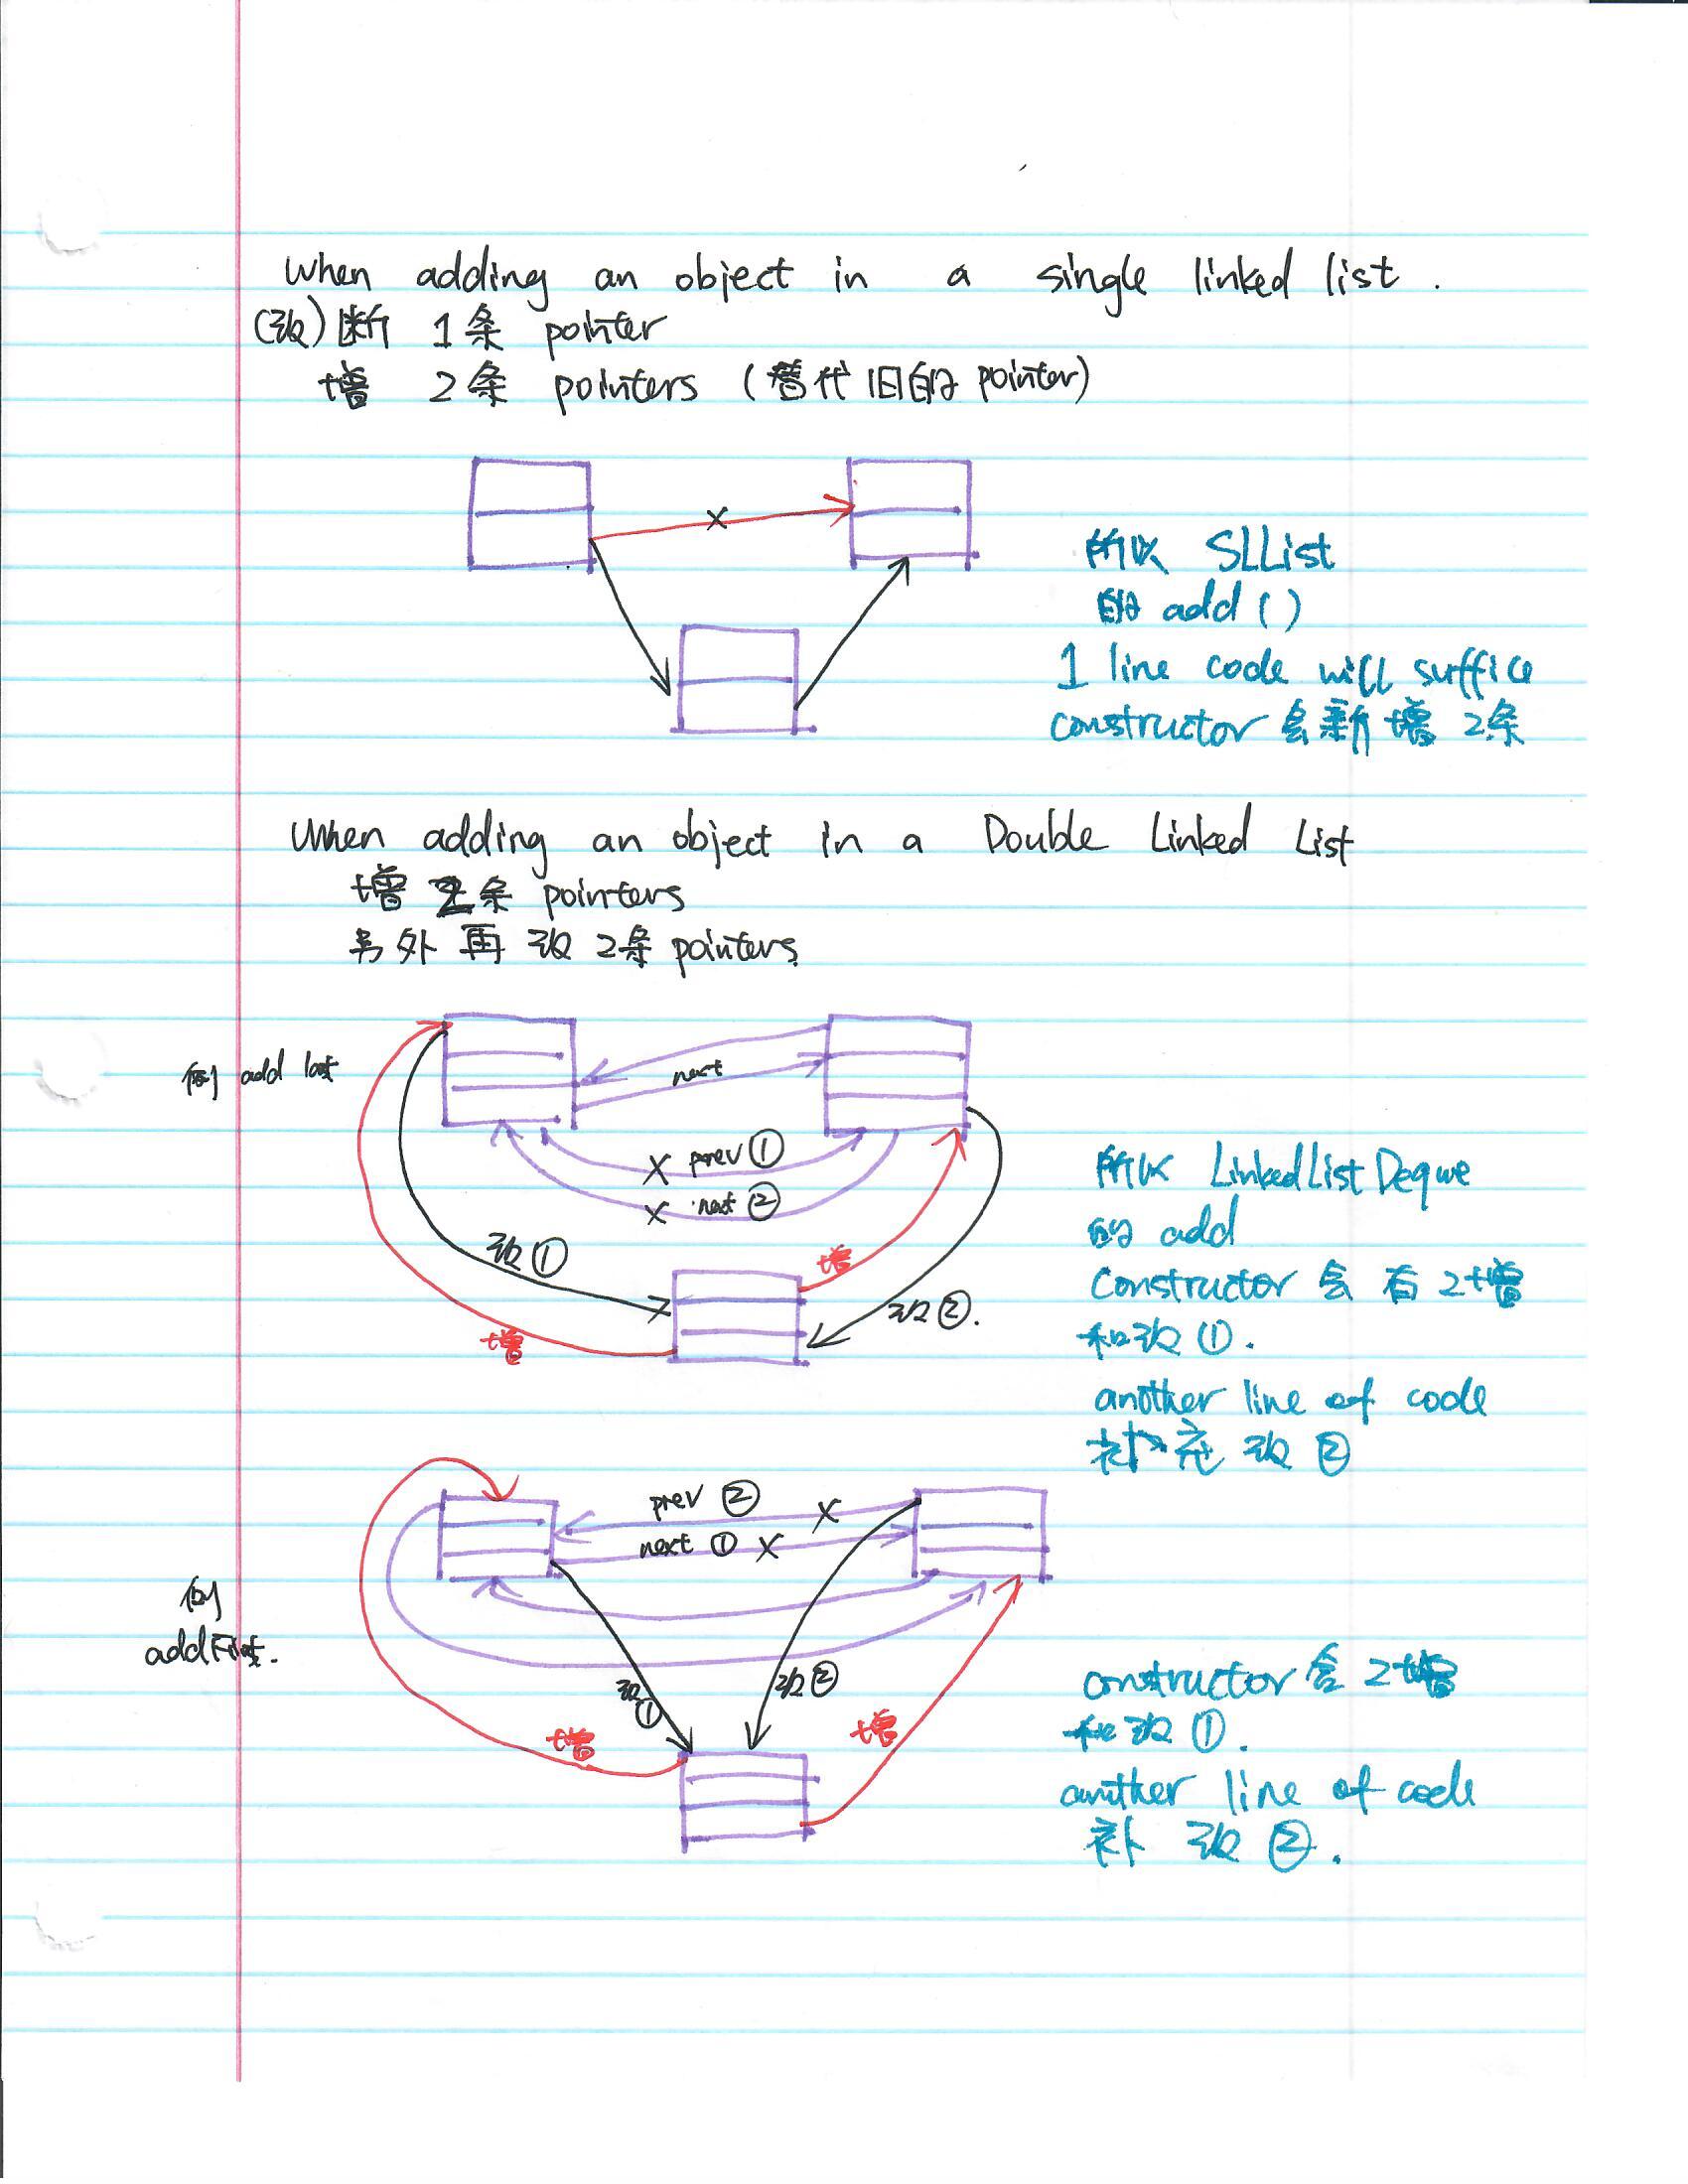 When adding an object in a single linked list.
(改)断 1条 pointer
增 2条 pointers (替代旧的pointer)
x
所以 SLList
的 add()
1 line code will suffice
constructor 会新增 2条
When adding an object in a Double Linked List
增 2条 pointers
另外再改 2条 pointers.
例 add last
next
x prev ①
x next ②
改①
增
改②.
增
所以 LinkedListDeque
的 add
Constructor 会有2增
和改①.
another line of code
补充改②
prev ② x
next ① x
例
addFirst.
改①
改②
增
增
constructor 含 2增
和改①.
another line of code
补 改②.